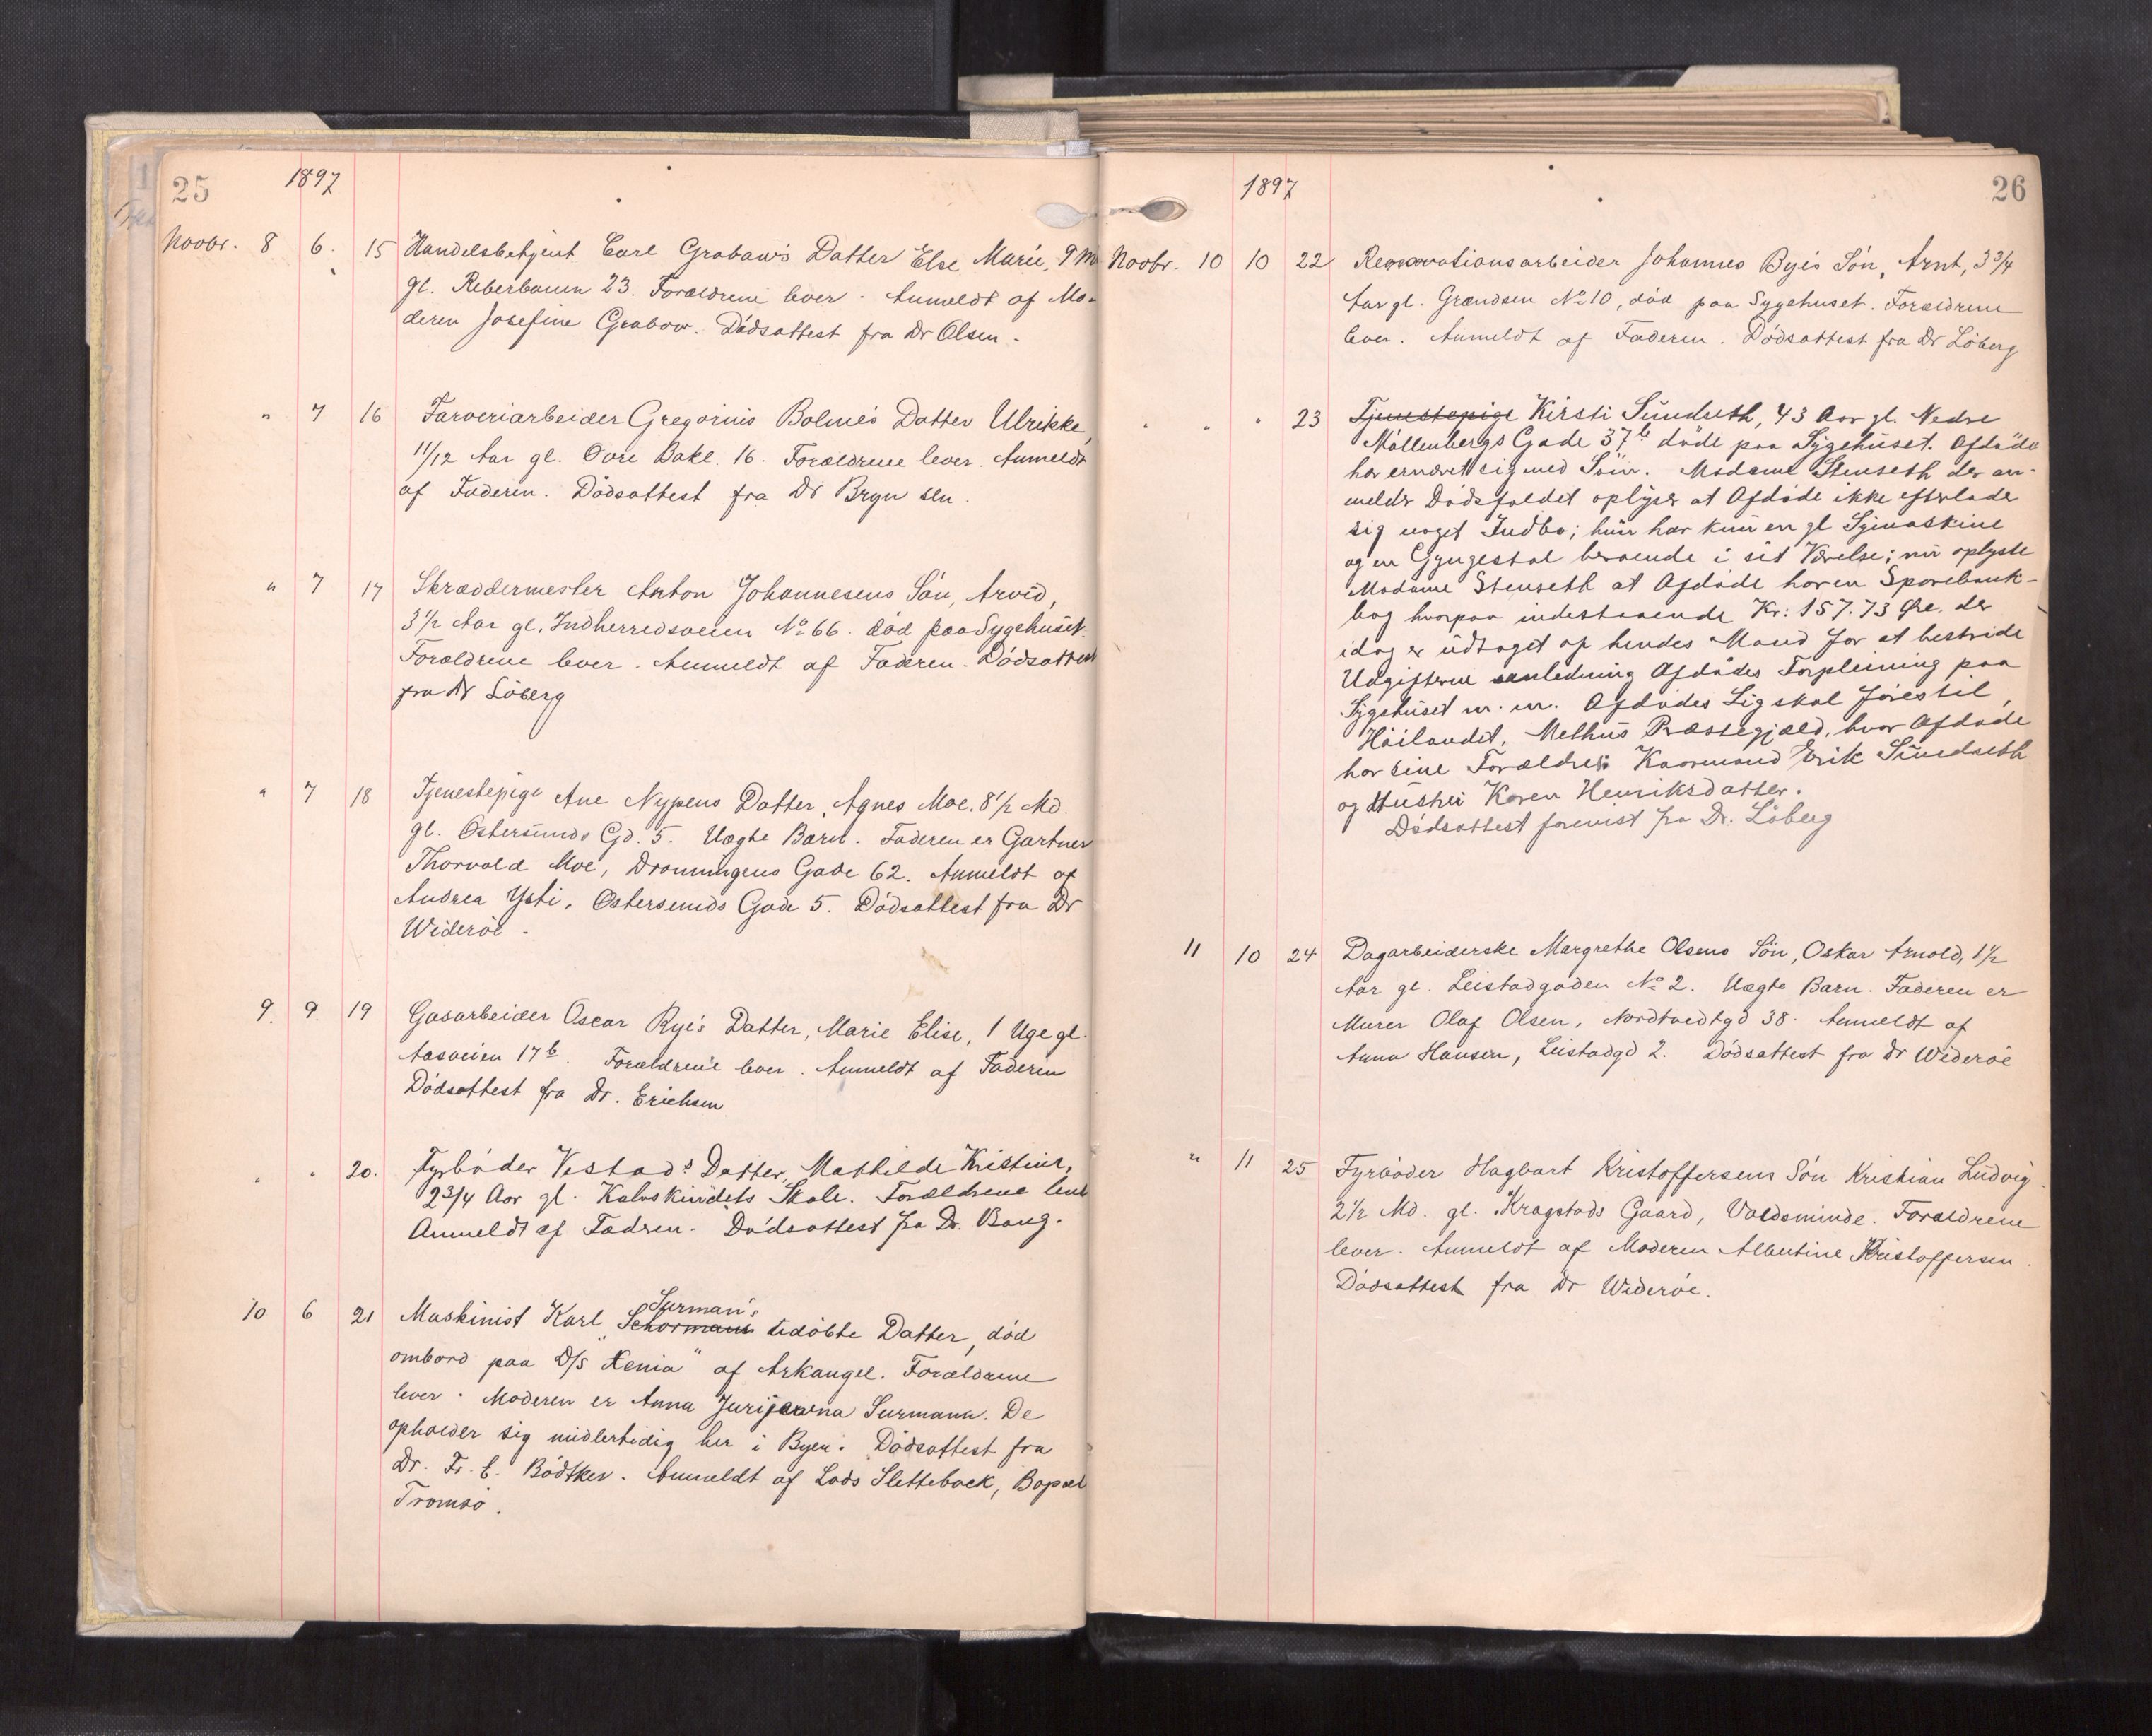 25
1897
Novbr. 8 6. 15 Handelsbetjent Carl Grabow's Datter Else Marie, 9 M
gl. Reberbanen 23. Forældrene lever. Anmeldt af Mo-
deren Josefine Grabow. Dødsattest fra Dr Olsen.
" 7 16 Farveriarbeider Gregorius Bolme's Datter Ulrikke,
11/12 Aar gl. Øvre Bakl. 16. Forældrene lever. Anmeldt
af Faderen. Dødsattest fra Dr Bryn sen.
" 7 17 Skræddermester Anton Johannesens Søn, Arvid,
3 1/2 Aar gl. Indherredsveien No 66. død paa Sygehuset.
Forældrene lever. Anmeldt af Faderen. Dødsattest
fra Dr Løberg
" 7 18 Tjenestepige Ane Nypens Datter, Agnes Moe. 8 1/2 Md.
gl. Østersunds Gd. 5. Uægte Barn. Faderen er Gartner
Thorvald Moe, Dronningens Gade 62. Anmeldt af
Andrea Ysti, Østersunds Gade 5. Dødsattest fra Dr
Widerøe.
9. 9. 19 Gasarbeider Oscar Rye's Datter, Marie Elise, 1 Uge gl.
Aasveien 17b. Forældrene lever. Anmeldt af Faderen
Dødsattest fra Dr. Erichsen
" " 20. Fyrbøder Vestad's Datter, Mathilde Kristine,
2 3/4 Aar gl. Kalvskindets Skole. Forældrene lever
Anmeldt af Fadren. Dødsattest fra Dr. Bang.
Surman's
10 6 21 Maskinist Karl Schormann udøbte Datter, død
ombord paa D/S "Xenia" af Arkangel. Forældrene
lever. Moderen er Anna Jurijewna Surmann. De
opholder sig midlertidig her i Byen. Dødsattest fra
Dr. Fr. E. Bødtker. Anmeldt af Lods Sletteback, Bopæl
Tromsø.
26
1897
Novbr. 10 10 22 Renovationsarbeider Johannes Bye's Søn, Arnt, 3 3/4
Aar gl. Grændsen No 10, død paa Sygehuset. Forældrene
lever. Anmeldt af Faderen. Dødsattest fra Dr Løberg
" " " 23 Tjenestepige Kirsti Sundseth, 43 Aar gl. Nedre
Møllenbergs Gade 37b døde paa Sygehuset. Afdøde
har ernæret sig med Søm. Madame Stenseth der an-
melder Dødsfaldet oplyser at Afdøde ikke efterlader
sig noget Indbo; hun har kun en gl Symaskine
og en Gyngestol beroende i sit Værelse; nu oplyste
Madame Stenseth at Afdøde har en Sparebank-
bog hvorpaa indestaaende Kr: 157.73 Øre. der
idag er udtaget af hendes Mand for at bestride
Udgifterne anledning Afdødes Forpleining paa
Sygehuset m. m. Afdødes Lig skal føres til
Høilandet, Melhus Præstegjæld, hvor Afdøde
har sine Forældre: Kaarmand Erik Sundseth
og Hustru Karen Henriksdatter.
Dødsattest forevist fra Dr. Løberg
11 10 24 Dagarbeiderske Margrethe Olsens Søn, Oskar Arnold, 1 1/2
Aar gl. Leistadgaden No 2. Uægte Barn. Faderen er
Murer Olaf Olsen, Nordtvedtgd 38. Anmeldt af
Anna Hansen, Leistadgd 2. Dødsattest fra Dr Widerøe
" 11 25 Fyrbøder Hagbart Kristoffersens Søn Kristian Ludvig.
2 1/2 Md. gl. Kragstads Gaard, Voldsminde. Forældrene
lever. Anmeldt af Moderen Albertine Kristoffersen.
Dødsattest fra Dr Widerøe.